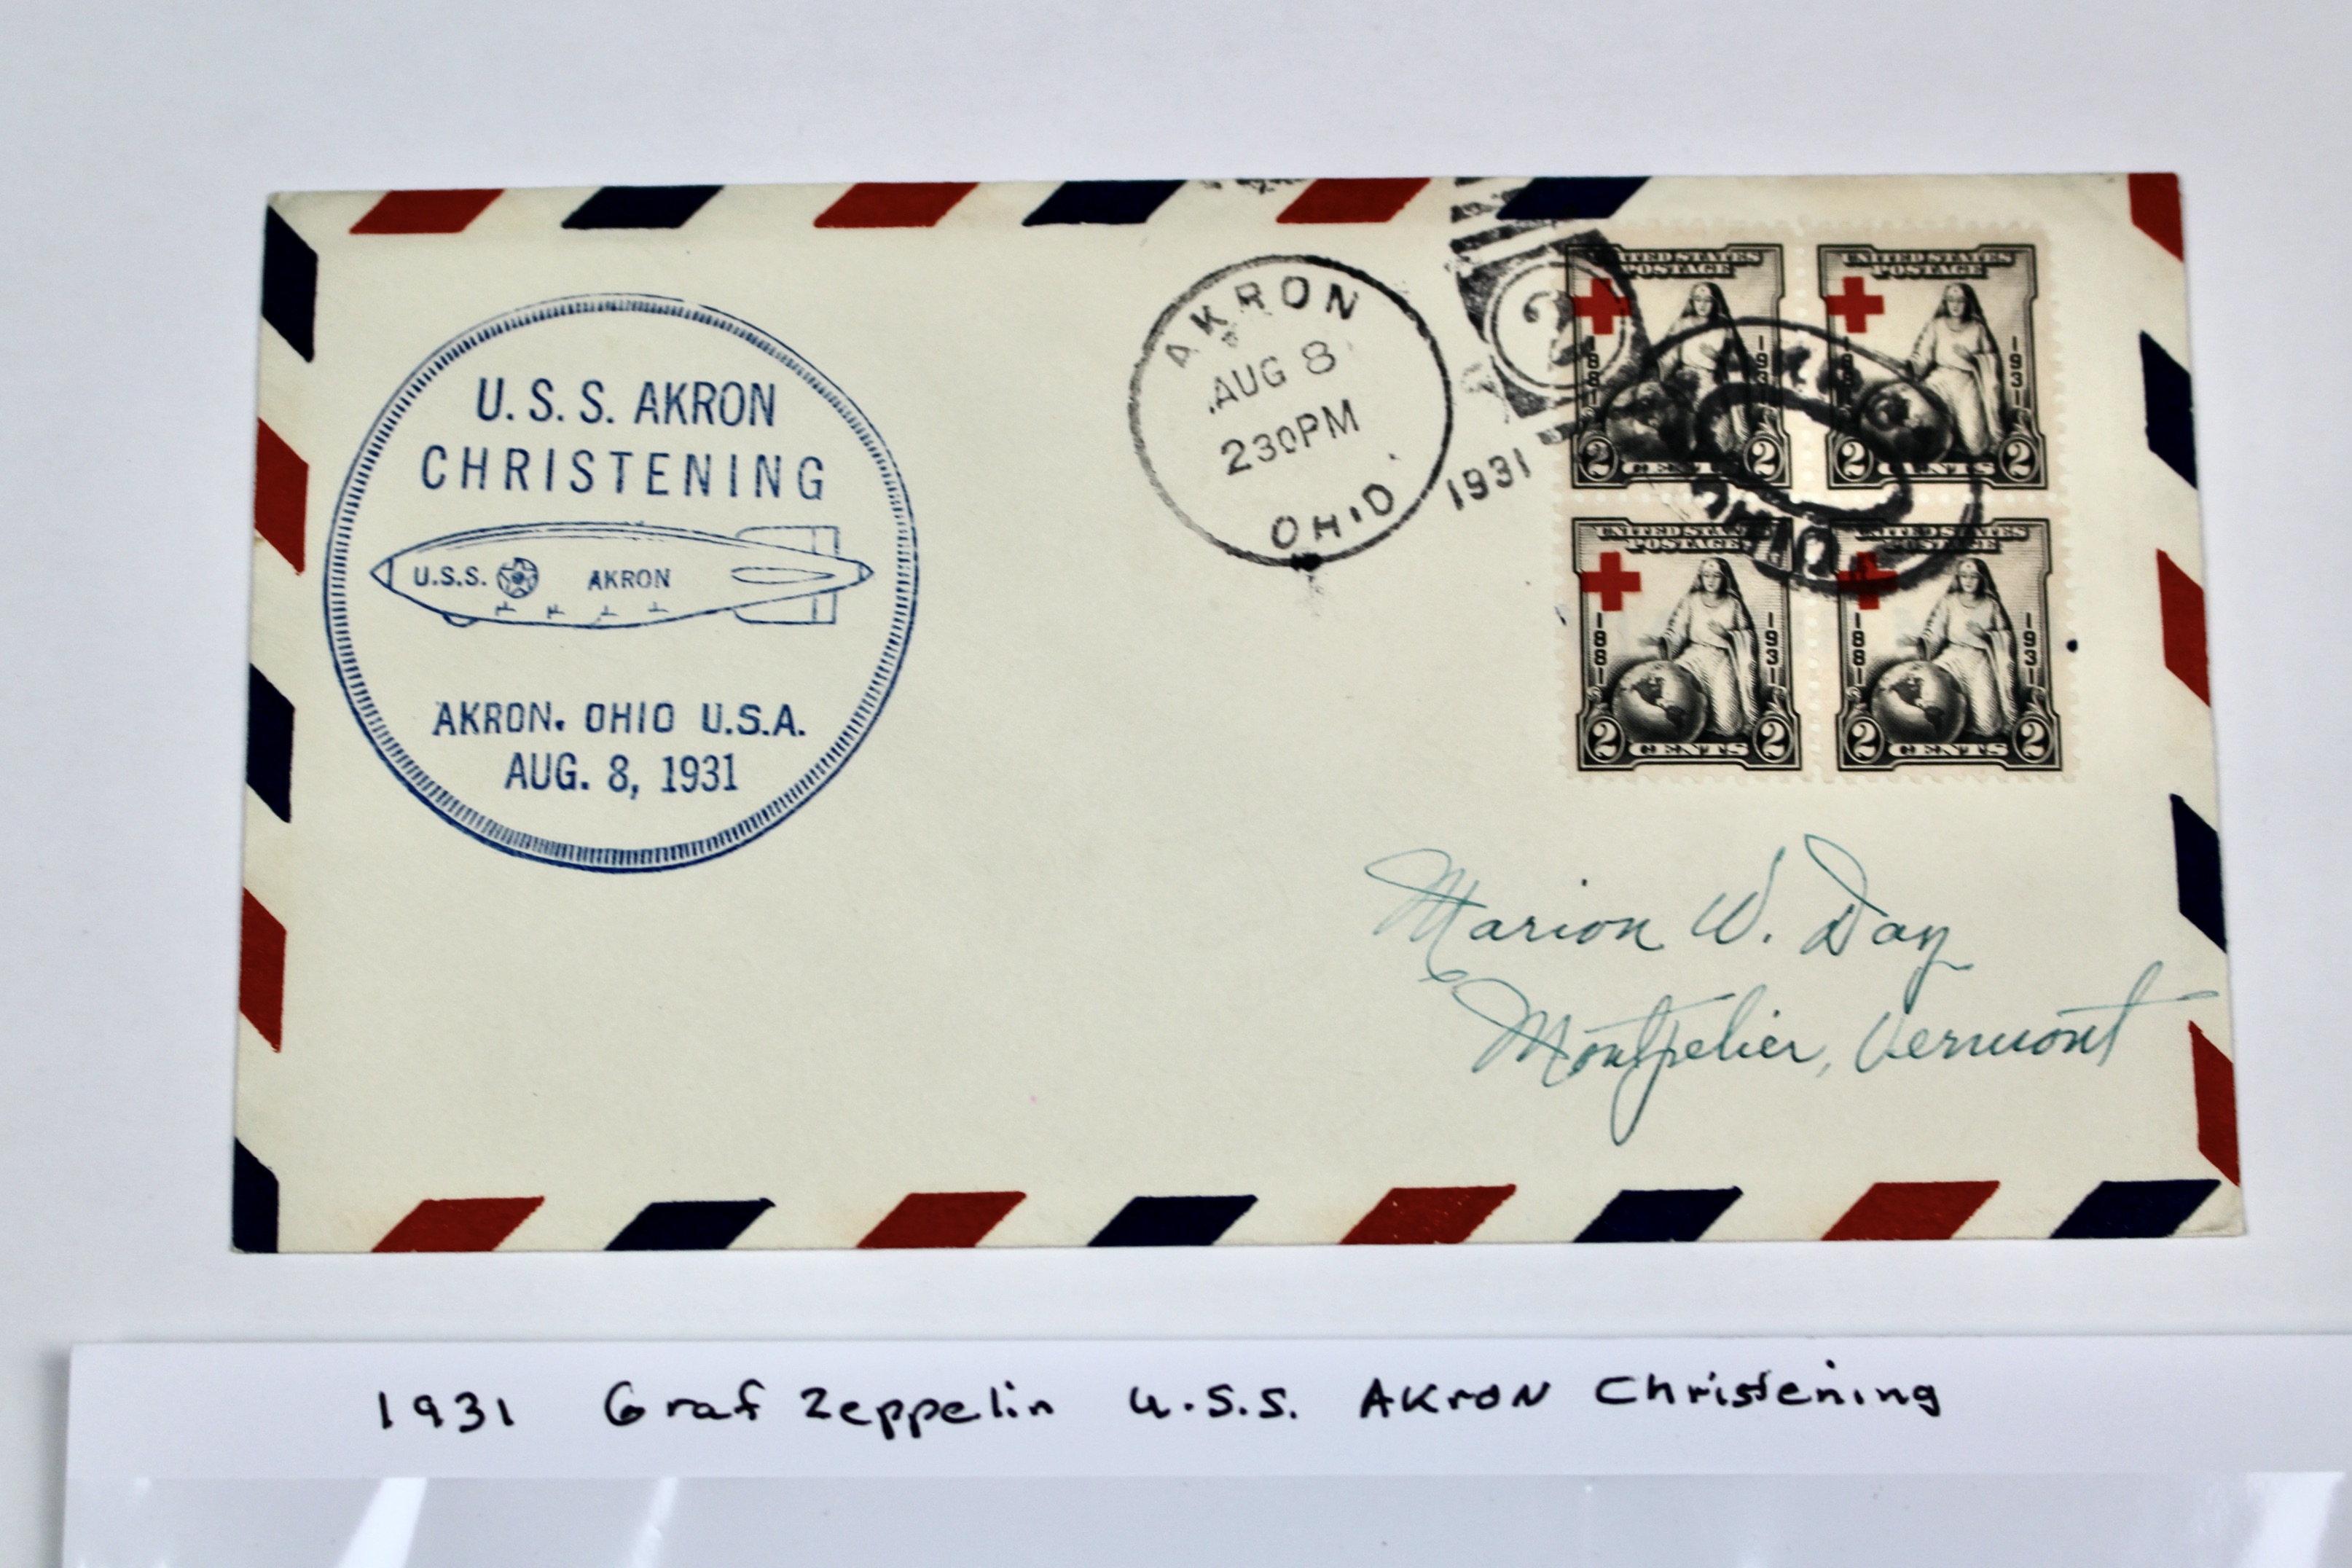 U.S.S. AKRON
CHRISTENING
U.S.S. AKRON
AKRON. OHIO U.S.A.
AUG. 8, 1931
AKRON
AUG 8
230PM
OHIO
1931
2
UNITED STATES
POSTAGE
1881
1931
2 CENTS 2
UNITED STATES
POSTAGE
1881
1931
2 CENTS 2
UNITED STATES
POSTAGE
1881
1931
2 CENTS 2
UNITED STATES
POSTAGE
1881
1931
2 CENTS 2
Marion W. Day
Montpelier, Vermont
1931 Graf Zeppelin U.S.S. AKRON Christening